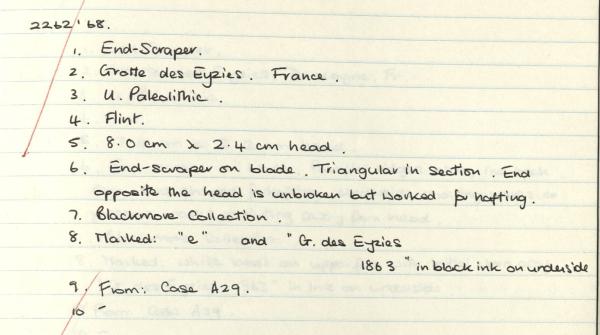 2262'68.
1. End-Scraper.
2. Grotte des Eyzies. France.
3. U. Paleolithic.
4. Flint.
5. 8.0 cm x 2.4 cm head.
6. End-scraper on blade. Triangular in section. End
opposite the head is unbroken but worked for hafting.
7. Blackmore Collection.
8. Marked: "e" and "G. des Eyzies
1863" in black ink on underside
9. From: Case A29.
10 -